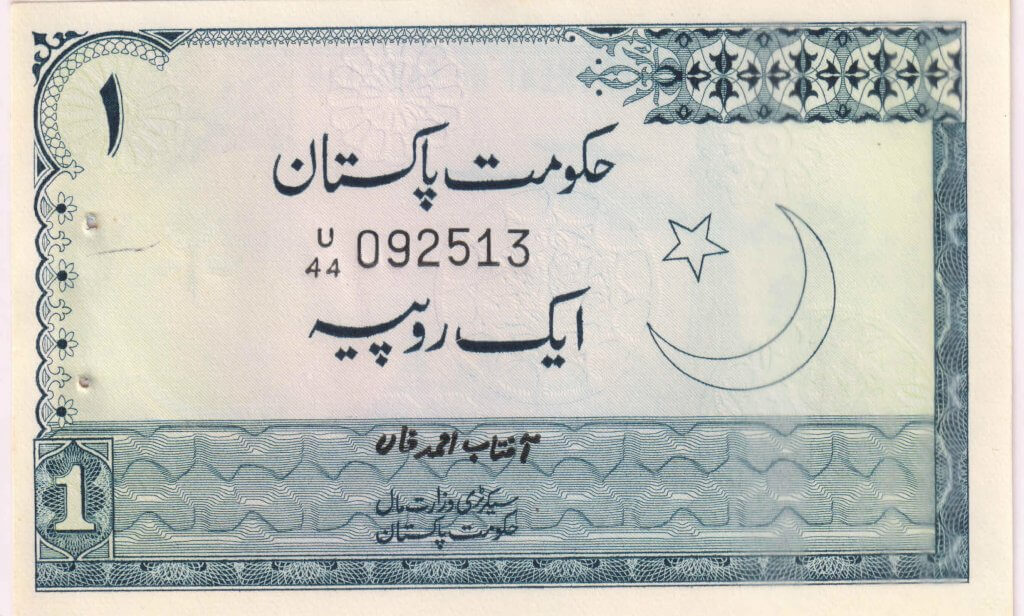 ۱
حکومت پاکستان
U/44 092513
ایک روپیہ
آفتاب احمد خاں
سیکرٹری وزارت مال
حکومت پاکستان
1